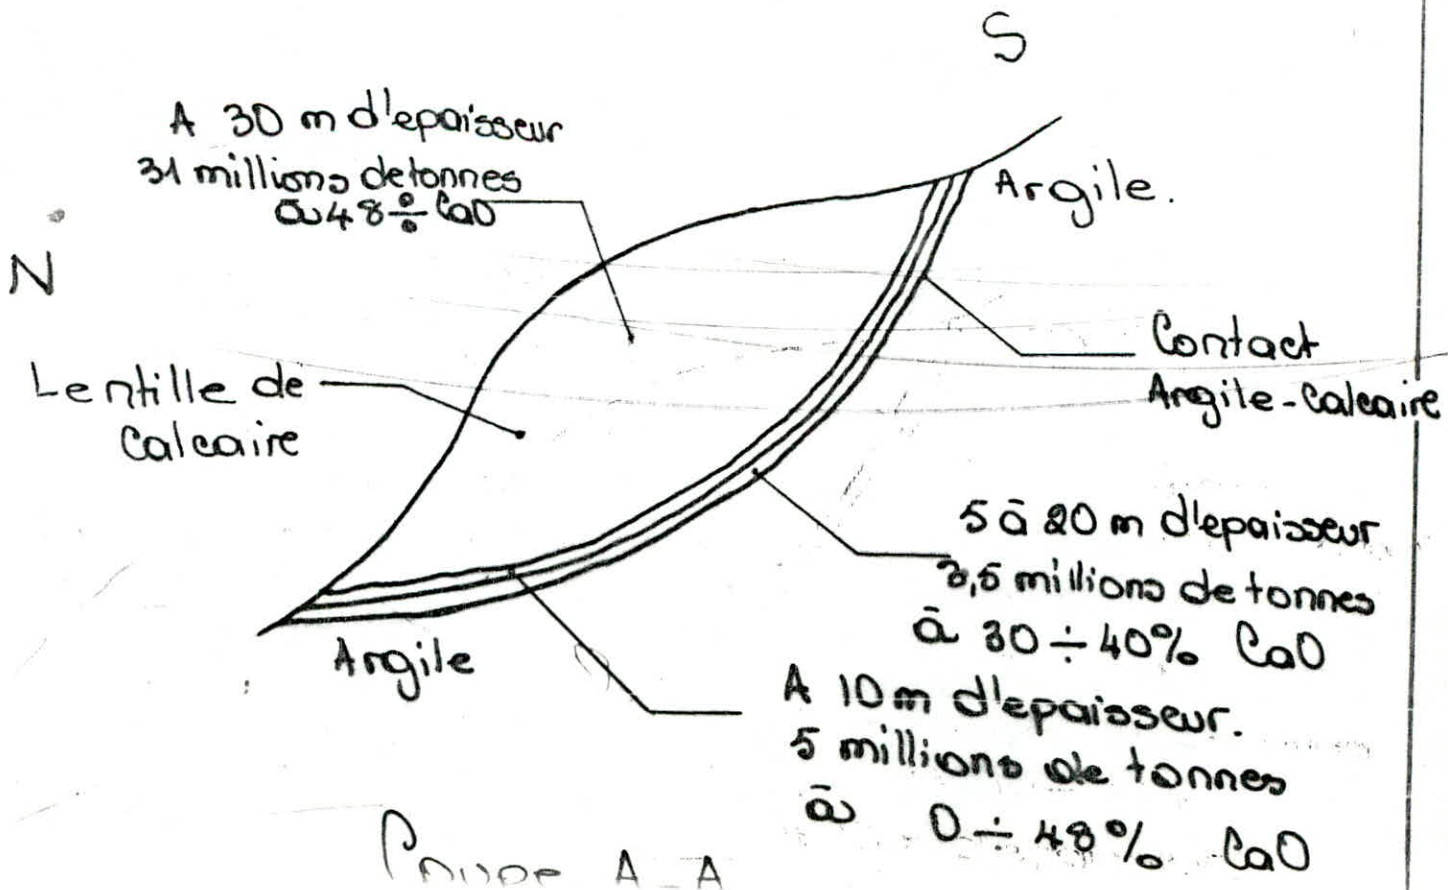 S
A 30 m d'epaisseur
31 millions de tonnes
à 48 % CaO
Argile.
N
Contact
Argile-Calcaire
Lentille de
Calcaire
5 à 20 m d'epaisseur
3,5 millions de tonnes
à 30 ÷ 40% CaO
Argile
A 10 m d'epaisseur.
5 millions de tonnes
à 0 ÷ 48% CaO
Coupe A_A